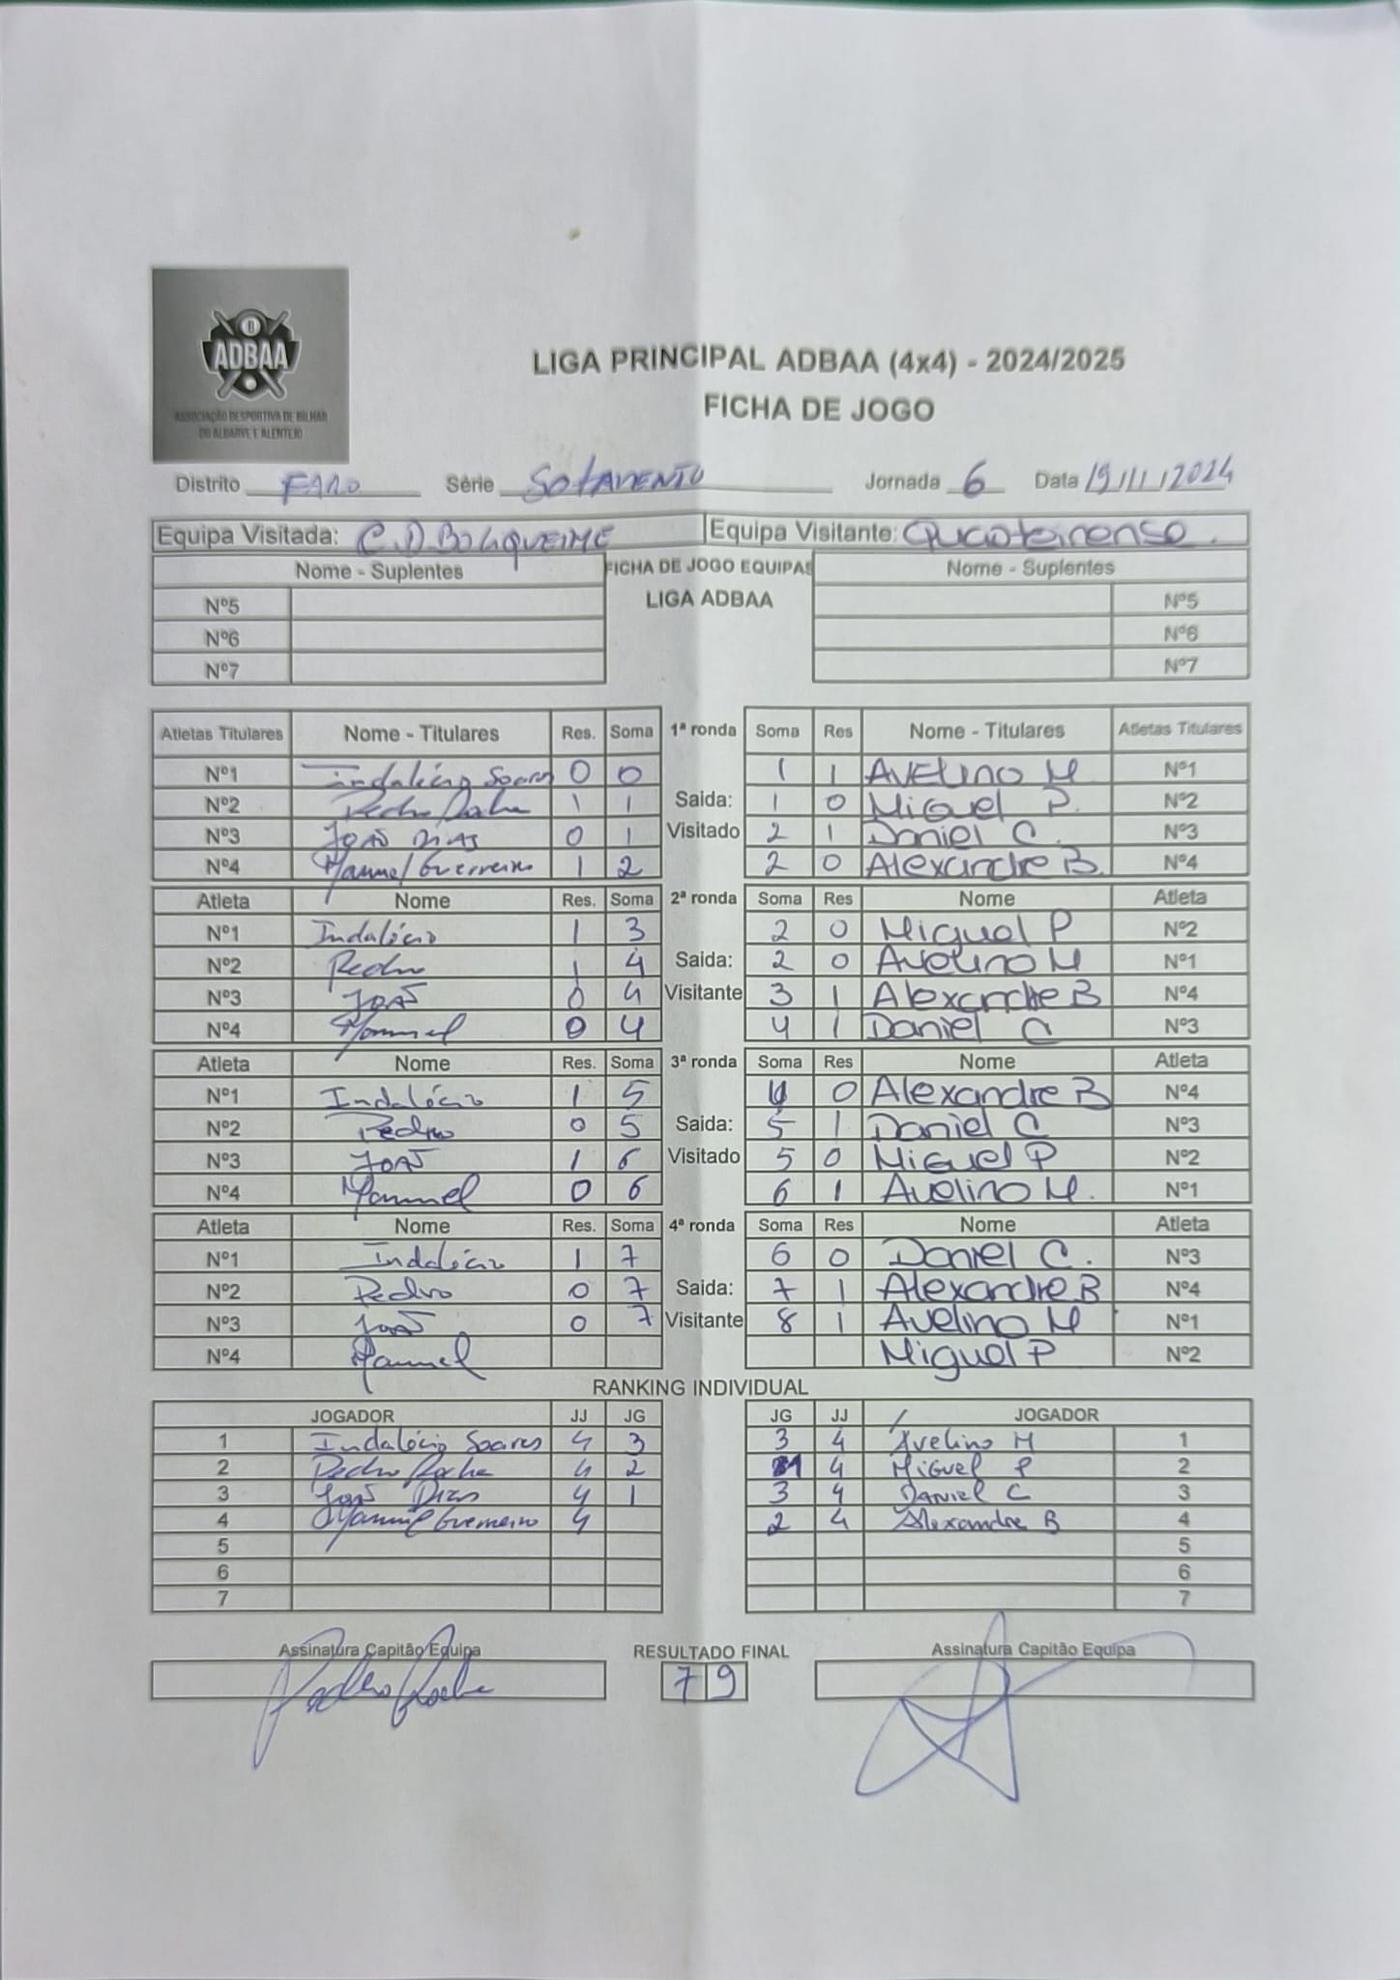 ADBAA
ASSOCIAÇÃO DESPORTIVA DE BILHAR
DO ALGARVE E ALENTEJO
LIGA PRINCIPAL ADBAA (4x4) - 2024/2025
FICHA DE JOGO
Distrito FARO Série SOTAVENTO Jornada 6 Data 19/11/2024
Equipa Visitada: C.D.BOLIQUEIME Equipa Visitante: Quarteirense.
Nome - Suplentes FICHA DE JOGO EQUIPAS Nome - Suplentes
Nº5 LIGA ADBAA Nº5
Nº6 Nº6
Nº7 Nº7
Atletas Titulares Nome - Titulares Res. Soma 1ª ronda Soma Res Nome - Titulares Atletas Titulares
Nº1 Indalécio Soares 0 0 1 1 AVELINO M Nº1
Nº2 Pedro Rocha 1 1 Saida: 1 0 Miguel P. Nº2
Nº3 JOÃO DIAS 0 1 Visitado 2 1 Daniel C. Nº3
Nº4 Manuel Guerreiro 1 2 2 0 Alexandre B. Nº4
Atleta Nome Res. Soma 2ª ronda Soma Res Nome Atleta
Nº1 Indalécio 1 3 2 0 Miguel P Nº2
Nº2 Pedro 1 4 Saida: 2 0 Avelino M Nº1
Nº3 JOÃO 0 4 Visitante 3 1 Alexandre B Nº4
Nº4 Manuel 0 4 4 1 Daniel C Nº3
Atleta Nome Res. Soma 3ª ronda Soma Res Nome Atleta
Nº1 Indalécio 1 5 4 0 Alexandre B Nº4
Nº2 Pedro 0 5 Saida: 5 1 Daniel C Nº3
Nº3 JOÃO 1 6 Visitado 5 0 Miguel P Nº2
Nº4 Manuel 0 6 6 1 Avelino M. Nº1
Atleta Nome Res. Soma 4ª ronda Soma Res Nome Atleta
Nº1 Indalécio 1 7 6 0 Daniel C. Nº3
Nº2 Pedro 0 7 Saida: 7 1 Alexandre B Nº4
Nº3 JOÃO 0 7 Visitante 8 1 Avelino M Nº1
Nº4 Manuel Miguel P Nº2
RANKING INDIVIDUAL
JOGADOR JJ JG JG JJ JOGADOR
1 Indalécio Soares 4 3 3 4 Avelino M 1
2 Pedro Rocha 4 2 1 4 Miguel P 2
3 João Dias 4 1 3 4 Daniel C 3
4 Manuel Guerreiro 4 2 4 Alexandre B 4
5 5
6 6
7 7
Assinatura Capitão Equipa RESULTADO FINAL Assinatura Capitão Equipa
Pedro Rocha 7 9